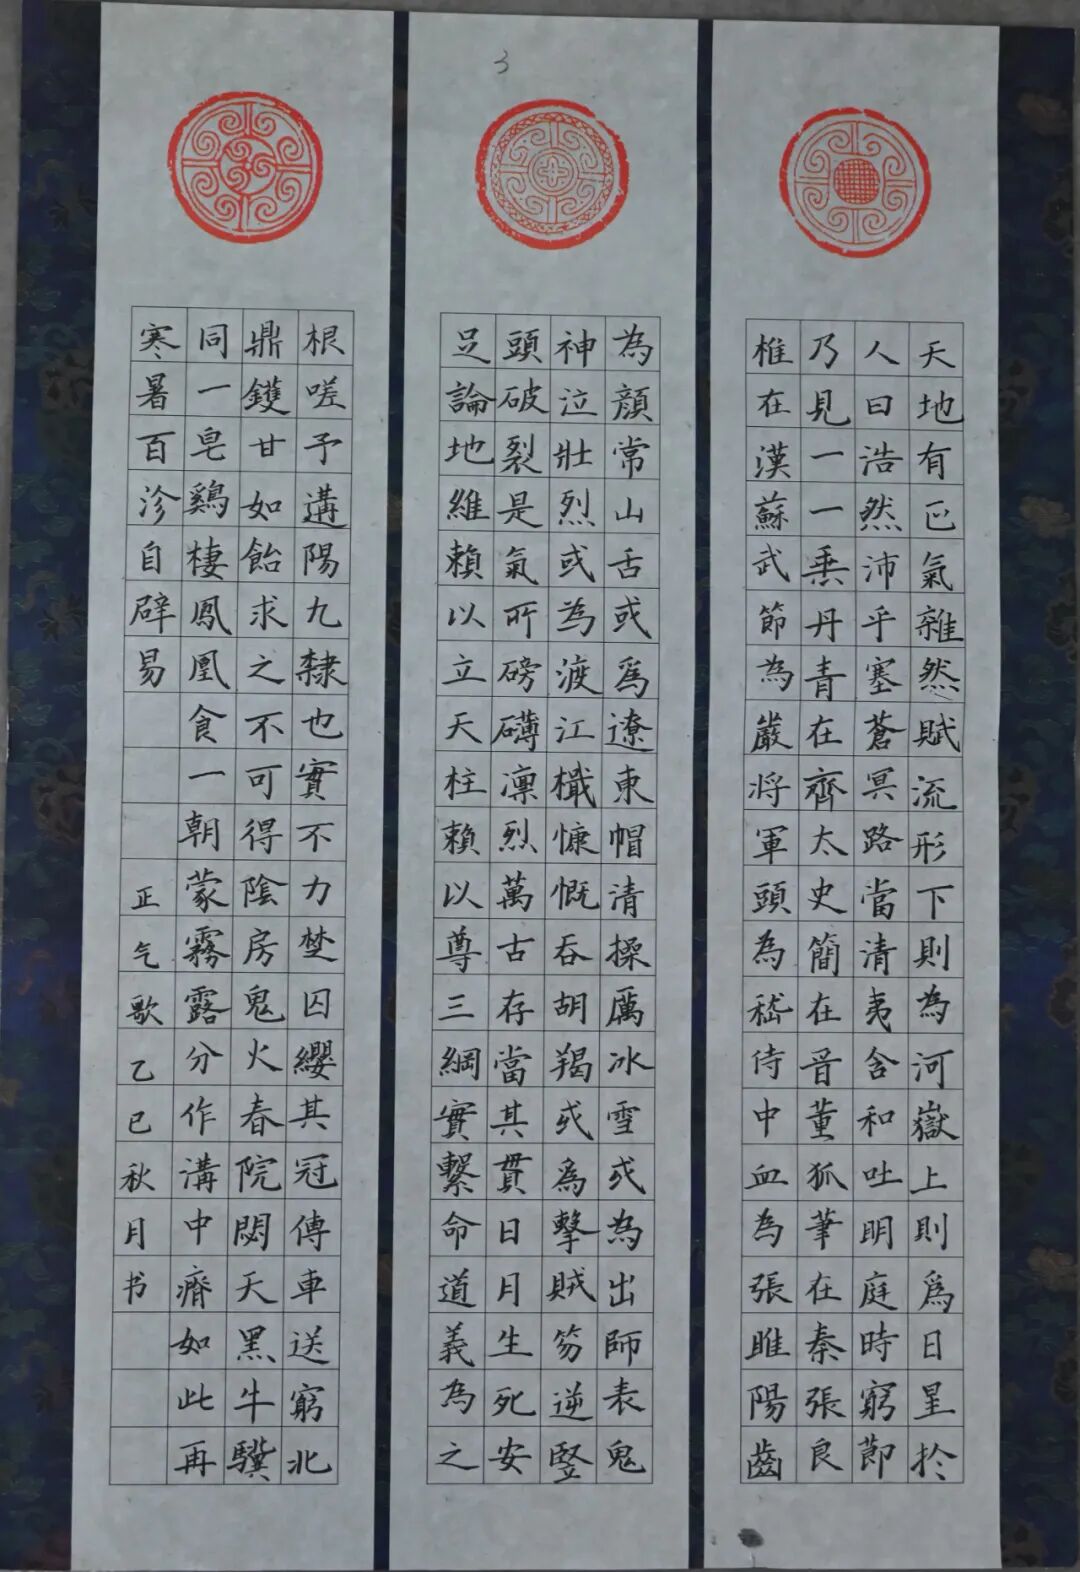 3
天地有正氣雜然賦流形下則為河嶽上則爲日星扵
人曰浩然沛乎塞蒼冥路當清夷含和吐明庭時窮節
乃見一一垂丹青在齊太史簡在音董狐筆在秦張良
椎在漢蘇武節為嚴將軍頭為嵇侍中血為張睢陽齒
為顏常山舌或爲遼東帽清操厲冰雪或為出師表鬼
神泣壯烈或為渡江檝慷慨吞胡羯或為擊賊笏逆豎
頭破裂是氣所磅礴凜烈萬古存當其貫日月生死安
足論地維賴以立天柱賴以尊三綱實繫命道義為之
根嗟予遘陽九隸也實不力楚囚纓其冠傳車送窮北
鼎鑊甘如飴求之不可得陰房鬼火春院閟天黑牛驥
同一皂鷄棲鳳凰食一朝蒙霧露分作溝中瘠如此再
寒暑百沴自辟易
正气歌乙巳秋月书